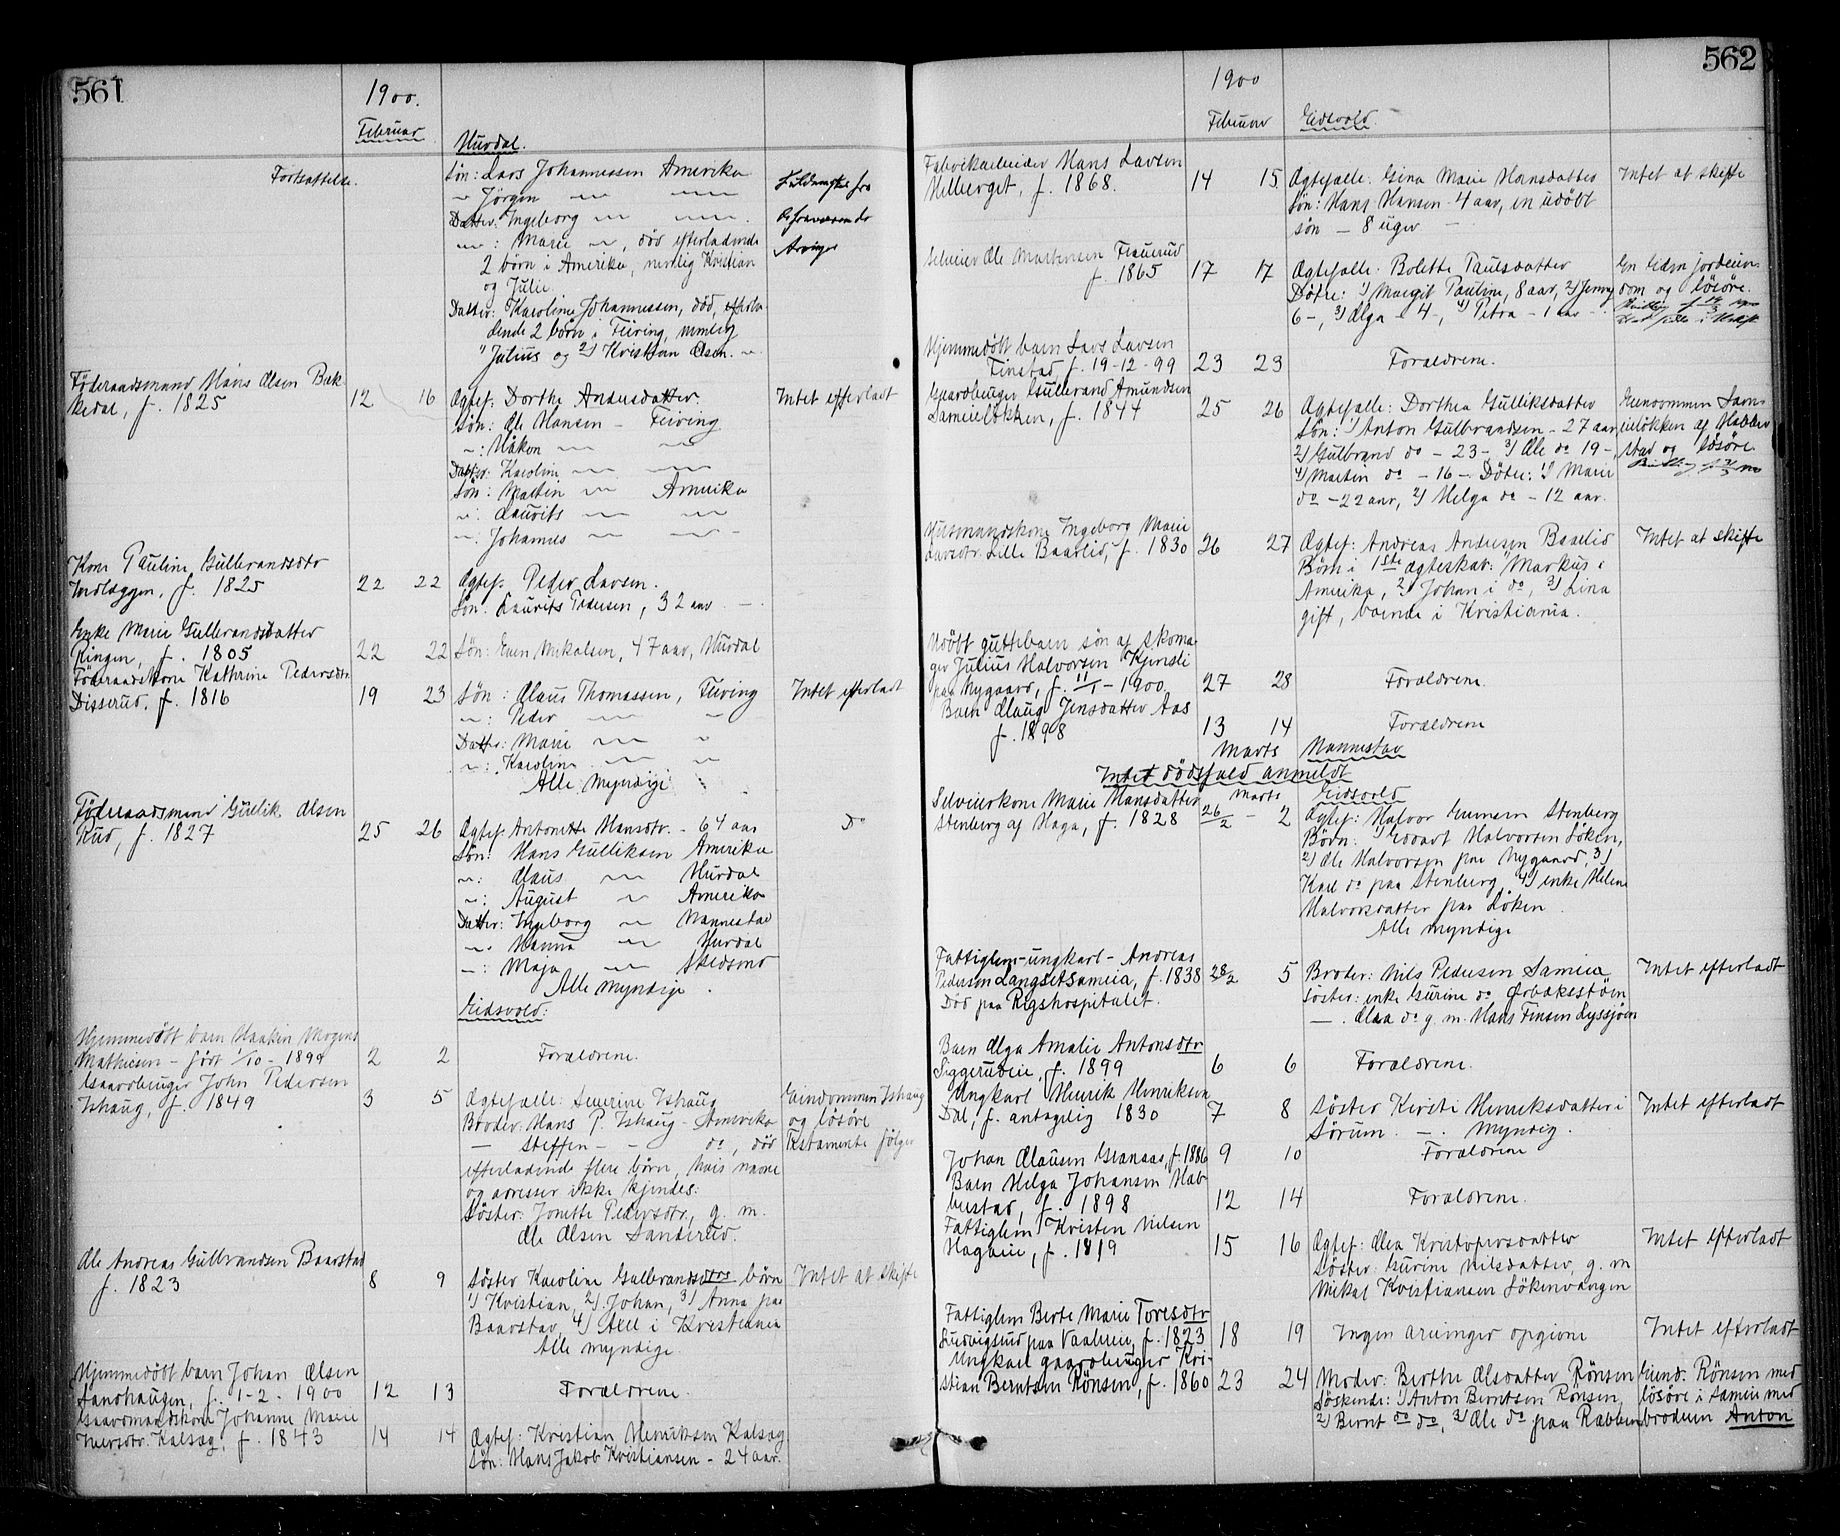 561
1900.
Februar
Hurdal.
Fortsættelse.
Søn: Lars Johannessen Amerika
" Jørgen — —
Datter: Ingeborg — —
—: Marie —, død efterladende
2 børn i Amerika, nemlig Kristian
og Julie.
Datter: Karoline Johannessen, død, efterla-
dende 2 børn i Feiring, nemlig
1) Julius og 2) Kristian Olsen.
Fuldmagter fra
fraværende
Arvinger
Føderaadsmand Hans Olsen Bak-
kedal, f. 1825
12 16
Ægtef: Dorthe Andersdatter.
Søn: Ole Hansen - Feiring
—: Håkon — —
Datter: Karoline — —
Søn: Martin — Amerika
—: Laurits — —
—: Johannes — —
Intet efterladt
Kone Pauline Gulbrandsdtr
f. 1825
22 22
Ægtef: Peder Larsen.
Søn: Laurits Pedersen, 32 aar. —.
Enke Marie Gulbrandsdatter
Ringen, f. 1805
22 22
Søn: Even Mikalsen, 47 aar, Hurdal
Føderaadskone Kathrine Pedersdtr
Disserud, f. 1816
19 23
Søn: Olaus Thomassen, Feiring
—: Peder — —
Datter: Marie — —
—: Karoline — —
Alle myndige
Intet efterladt
Føderaadsmand Gullik Olsen
Rud, f. 1827
25 26
Ægtef: Antonette Hansdtr. - 64 aar
Søn: Hans Gulliksen Amerika
—: Olaus — Hurdal
—: August — Amerika
Datter: Ingeborg — Nannestad
—: Hanna — Hurdal
—: Maja — Skedsmo
Alle myndige.
Do
Eidsvold:
Hjemmedøbt barn Haakin Mogens
Mathisen - født 1/10 - 1899
2 2
Forældrene.
Gaardbruger John Pedersen
Ishaug, f. 1849
3 5
Ægtefælle: Severine Ishaug
Broder: Hans P. Ishaug - Amerika
— Steffen - - do, død
efterladende flere børn, hvis navne
og adresser ikke kjendes.
Søster: Jonette Pedersdtr, g. m.
Ole Olsen Sanderud.
Eiendommen Ishaug
og løsøre
Testamente følger
Ole Andreas Gulbrandsen Baarstad
f. 1823
8 9
Søster Karoline Gulbrandsdtrs børn
1) Kristian, 2) Johan, 3) Anna paa
Baarstad, 4) Axel i Kristiania
Alle myndige.
Intet at skifte
Hjemmedøbt barn Johan Olsen
Sandhaugen, f. 1-2-1900
12 13
Forældrene.
Gaardmandskone Johanne Marie
Iversdtr. Kalsæg, f. 1843
14 14
Ægtef: Kristian Henriksen Kalsæg
Søn: Hans Jakob Kristiansen - 24 aar.
562
1900
Februar
Eidsvold.
Fabrikarbeider Hans Larsen
Helberget, f. 1868.
14 15
Ægtefælle: Gina Marie Hansdatter
Søn: Hans Hansen - 4 aar, en udøbt
søn - 8 uger —
Intet at skifte
Selveier Ole Martinsen
f. 1865
17 17
Ægtefælle: Bolette Paulsdatter
Døtre: 1) Margit Pauline, 8 aar, 2) Jenny
6 -, 3) Olga - 4 -, 4) Petra - 1 aar -
En liden jordeien-
dom og løsøre.
Hjemmedøbt barn Lars Larsen
Finstad, f. 19-12-99
23 23
Forældrene.
Gaardbruger Gulbrand Amundsen
Sameieløkken, f. 1844
25 26
Ægtefælle: Dorthea Gulliksdatter
Søn: 1) Anton Gulbrandsen - 27 aar,
2) Gulbrand do - 23 - 3) Ole do 19 -,
4) Martin do - 16 -. Døtre: 1) Marie
do - 22 aar, 2) Helga do - 12 aar.
Eiendommen Sam-
eieløkken af Habber-
stad og løsøre
Husmandskone Ingeborg Marie
Larsdtr. Lille Baarlid, f. 1830
26 27
Ægtef: Andreas Andersen Baarlid
Børn i 1ste ægteskab: 1) Markus i
Amerika, 2) Johan i do, 3) Lina
gift, boende i Kristiania.
Intet at skifte
Udøbt guttebarn søn af skoma-
ger Julius Halvorsen Kjensli
paa Nygaard, f. 11/1 - 1900
27 28
Forældrene.
Barn Olaug Jensdatter Aas
f. 1898
13 14
Forældrene
Marts Nannestad
Intet dødsfald anmeldt
Marts Eidsvold
Selveierkone Marie Hansdatter
Stenberg af Haga, f. 1828
26/2 - 2
Ægtef: Halvor Gunnersen Stenberg
Børn: 1) Edvart Halvorsen Løken,
2) Ole Halvorsen paa Nygaard, 3)
Karl do paa Stenberg, 4) enke Helene
Halvorsdatter paa Løken
Alle myndige
Fattiglem - ungkarl - Andreas
Pedersen Langsetsameia, f. 1838
Død paa Rigshospitalet.
28/2 5
Broder: Nils Pedersen Sameia
Søster: enke Gurine do Ørbækstøen
—. Olea do g. m. Hans Finsen Lyssjøen
Intet efterladt
Barn Olga Amalie Antonsdtr
Siggerudeie, f. 1899
6 6
Forældrene.
Ungkarl Henrik Henriksen
Dal, f. antagelig 1830
7 8
Søster Kirsti Henriksdatter i
Sørum. —. Myndig.
Intet efterladt
Johan Olausen Granaas, f. 1886
9 10
Forældrene
Barn Helga Johansen Hab-
berstad, f. 1898
12 14
Forældrene.
Fattiglem Kristen Nilsen
Hagaeie, f. 1819
15 16
Ægtef: Olea Kristofersdatter
Søster: Gurine Nilsdatter, g. m
Mikal Kristiansen Løkenvangen
Intet efterladt
Fattiglem Berte Marie Toresdtr
Ludvigsrud paa Vaalneie, f. 1823
18 19
Ingen arvinger opgivne
Intet efterladt
Ungkarl gaardbruger Kri-
stian Berntsen Rönsen, f. 1860
23 24
Moder: Berthe Olsdatter Rönsen
Søskende: 1) Anton Berntsen Rönsen,
2) Bernt do do, 3) Ole do paa Ræbben
Eiend. Rönsen med
løsøre i Sameie med
broderen Anton